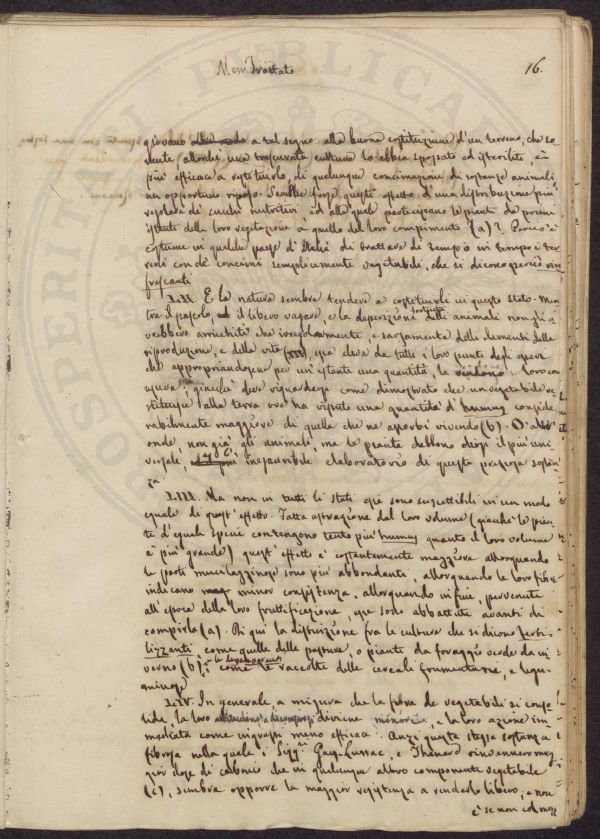 Mem. Trattato
16.
giovano a tal segno alla buona costituzione d'un terreno, che so-
vente, allorchè una trascurata cultura lo abbia spossato ed isterilito, è
più efficace a restituirlo, di qualunque concimazione di sostanze animali
un opportuno riposo. Sarebbe forse questi effetto d'una distribuzione più
regolare di succhi nutritivi, ed alla quale partecipano le piante da primi
istanti della loro vegetazione a quello del loro compimento (a)? Perciò è
costume in qualche paese d'Italia di trattare di tempo in tempo i ter-
reni con de' concimi semplicemente vegetabili, che si dicono perciò rin-
frescanti
LII. E la natura sembra tendere a costituirli in questo stato. Men-
tre il pascolo, ed il libero vagare, e la deperizione fortuita delli animali non gli a-
vrebbero arricchiti che irregolarmente, e scarsamente delli elementi della
riproduzione, e della vita, essa eleva da tutti i loro punti degli esseri
che appropriandosene per un istante una quantità, la rendono
usura; giacchè deve riguardarsi come dimostrato che un vegetabile re-
stituisce alla terra ove ha vissuto una quantità d'humus conside-
rabilmente maggiore di quella che ne assorbì vivendo (b). D'alt-
onde, non già gli animali, ma le piante debbono dirsi il più uni-
versale, inesauribile elaboratorio di questa preziosa sostan-
za.
LIII. Ma non in tutti li stati esse sono suscettibili in un modo
eguale di quest'effetto. Fatta astrazione dal loro volume (giacchè le pian-
te d'eguale specie contengono tanto più humus quanto il loro volume
è più grande) quest'effetto è costantemente maggiore allorquando
le parti mucilagginose sono più abbondanti, allorquando le loro fibre
indicano minor consistenza, allorquando in fine, pervenute
all'epoca della loro fruttificazione, esse sono abbattute avanti di
compirla (a). Di qui la distinzione fra le culture che si dicono ferti-
lizzanti, come quelle delle pasture, o piante da foraggio verde da in-
verno (b), e le depauperanti come le raccolte delle cereali frumentarie, e legu-
minose
LIV. In generale, a misura che la fibra de vegetabili si conso-
lida, la loro attitudine a decomporsi diviene minore, e la loro azione im-
mediata come ingrassi meno efficace. Anzi questa stessa sostanza
fibrosa nella quale i Sigg.ri Gay-Lussac, e Thenard rinvennero mag-
gior dose di carbonio che in qualunque altro componente vegetabile
(c), sembra opporre la maggior resistenza a renderlo libero, e non
è se non col mezz